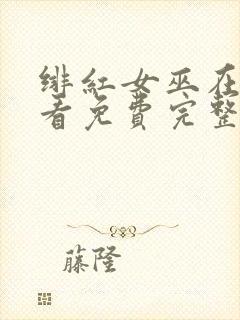 绯红女巫在
看免费完整
藤隆